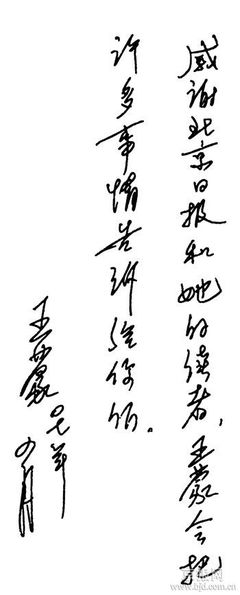 感谢北京日报和她的读者，王蒙会把
许多事情告诉给你们。
王蒙
四月
www.bjd.com.cn